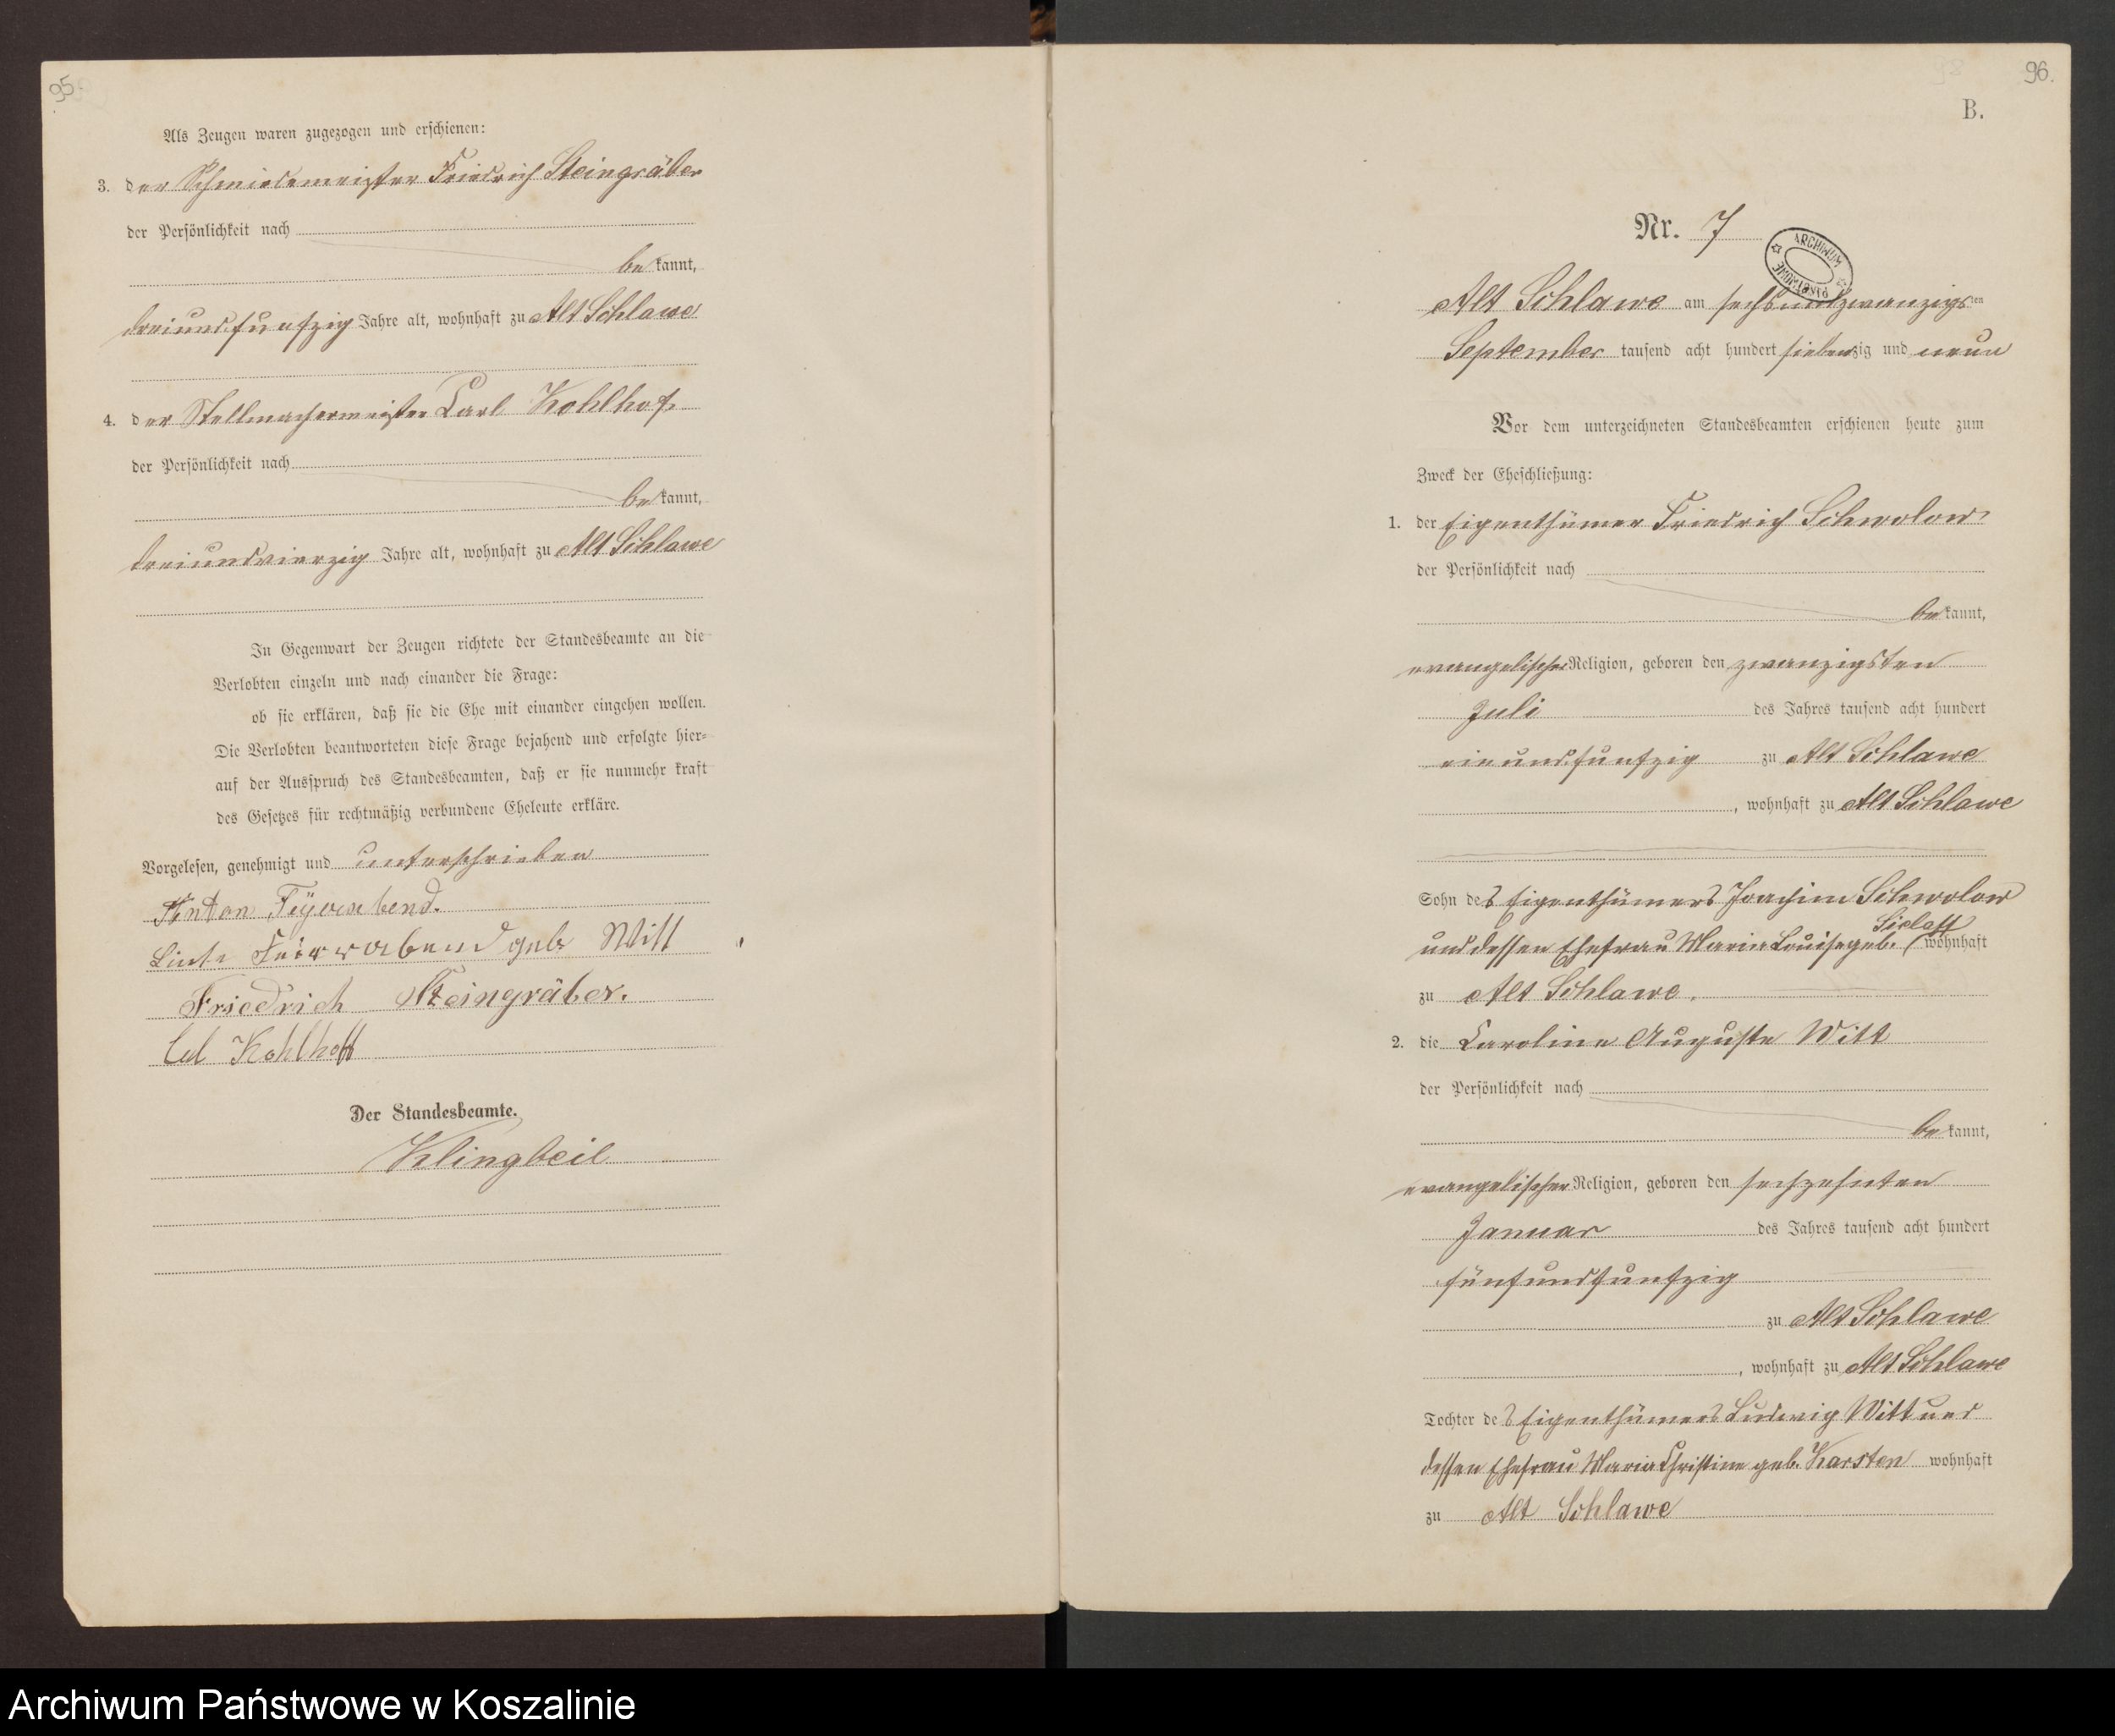 95.
Als Zeugen waren zugezogen und erschienen:
3. der Schmiedemeister Friedrich Steingräber
der Persönlichkeit nach
bekannt,
dreiundfunfzig Jahre alt, wohnhaft zu Alt Schlawe
4. der Stellmachermeister Carl Kohlhof
der Persönlichkeit nach
bekannt,
dreiundvierzig Jahre alt, wohnhaft zu Alt Schlawe
In Gegenwart der Zeugen richtete der Standesbeamte an die
Verlobten einzeln und nach einander die Frage:
ob sie erklären, daß sie die Ehe mit einander eingehen wollen.
Die Verlobten beantworteten diese Frage bejahend und erfolgte hier-
auf der Ausspruch des Standesbeamten, daß er sie nunmehr kraft
des Gesetzes für rechtmäßig verbundene Eheleute erkläre.
Vorgelesen, genehmigt und unterschrieben
Anton Feyerabend.
geb Witt
Friedrich Steingräber.
Kohlhoff
Der Standesbeamte.
Klingbeil
96.
B.
Nr. 7
ARCHIWUM PAŃSTWOWE
Alt Schlawe am sechsundzwanzigsten
September tausend acht hundert siebenzig und neun
Vor dem unterzeichneten Standesbeamten erschienen heute zum
Zweck der Eheschließung:
1. der Eigenthümer Friedrich Schwolow
der Persönlichkeit nach
bekannt,
evangelischer Religion, geboren den zwanzigsten
Juli des Jahres tausend acht hundert
einundfunfzig zu Alt Schlawe
, wohnhaft zu Alt Schlawe
Sohn des Eigenthümers Joachim Schwolow
und dessen Ehefrau Maria Louise geb. Sielaff wohnhaft
zu Alt Schlawe.
2. die Caroline Auguste Witt
der Persönlichkeit nach
bekannt,
evangelischer Religion, geboren den sechzehnten
Januar des Jahres tausend acht hundert
fünfundfunfzig
zu Alt Schlawe
, wohnhaft zu Alt Schlawe
Tochter des Eigenthümers Ludwig Witt und
dessen Ehefrau Maria Christine geb. Karsten wohnhaft
zu Alt Schlawe
Archiwum Państwowe w Koszalinie